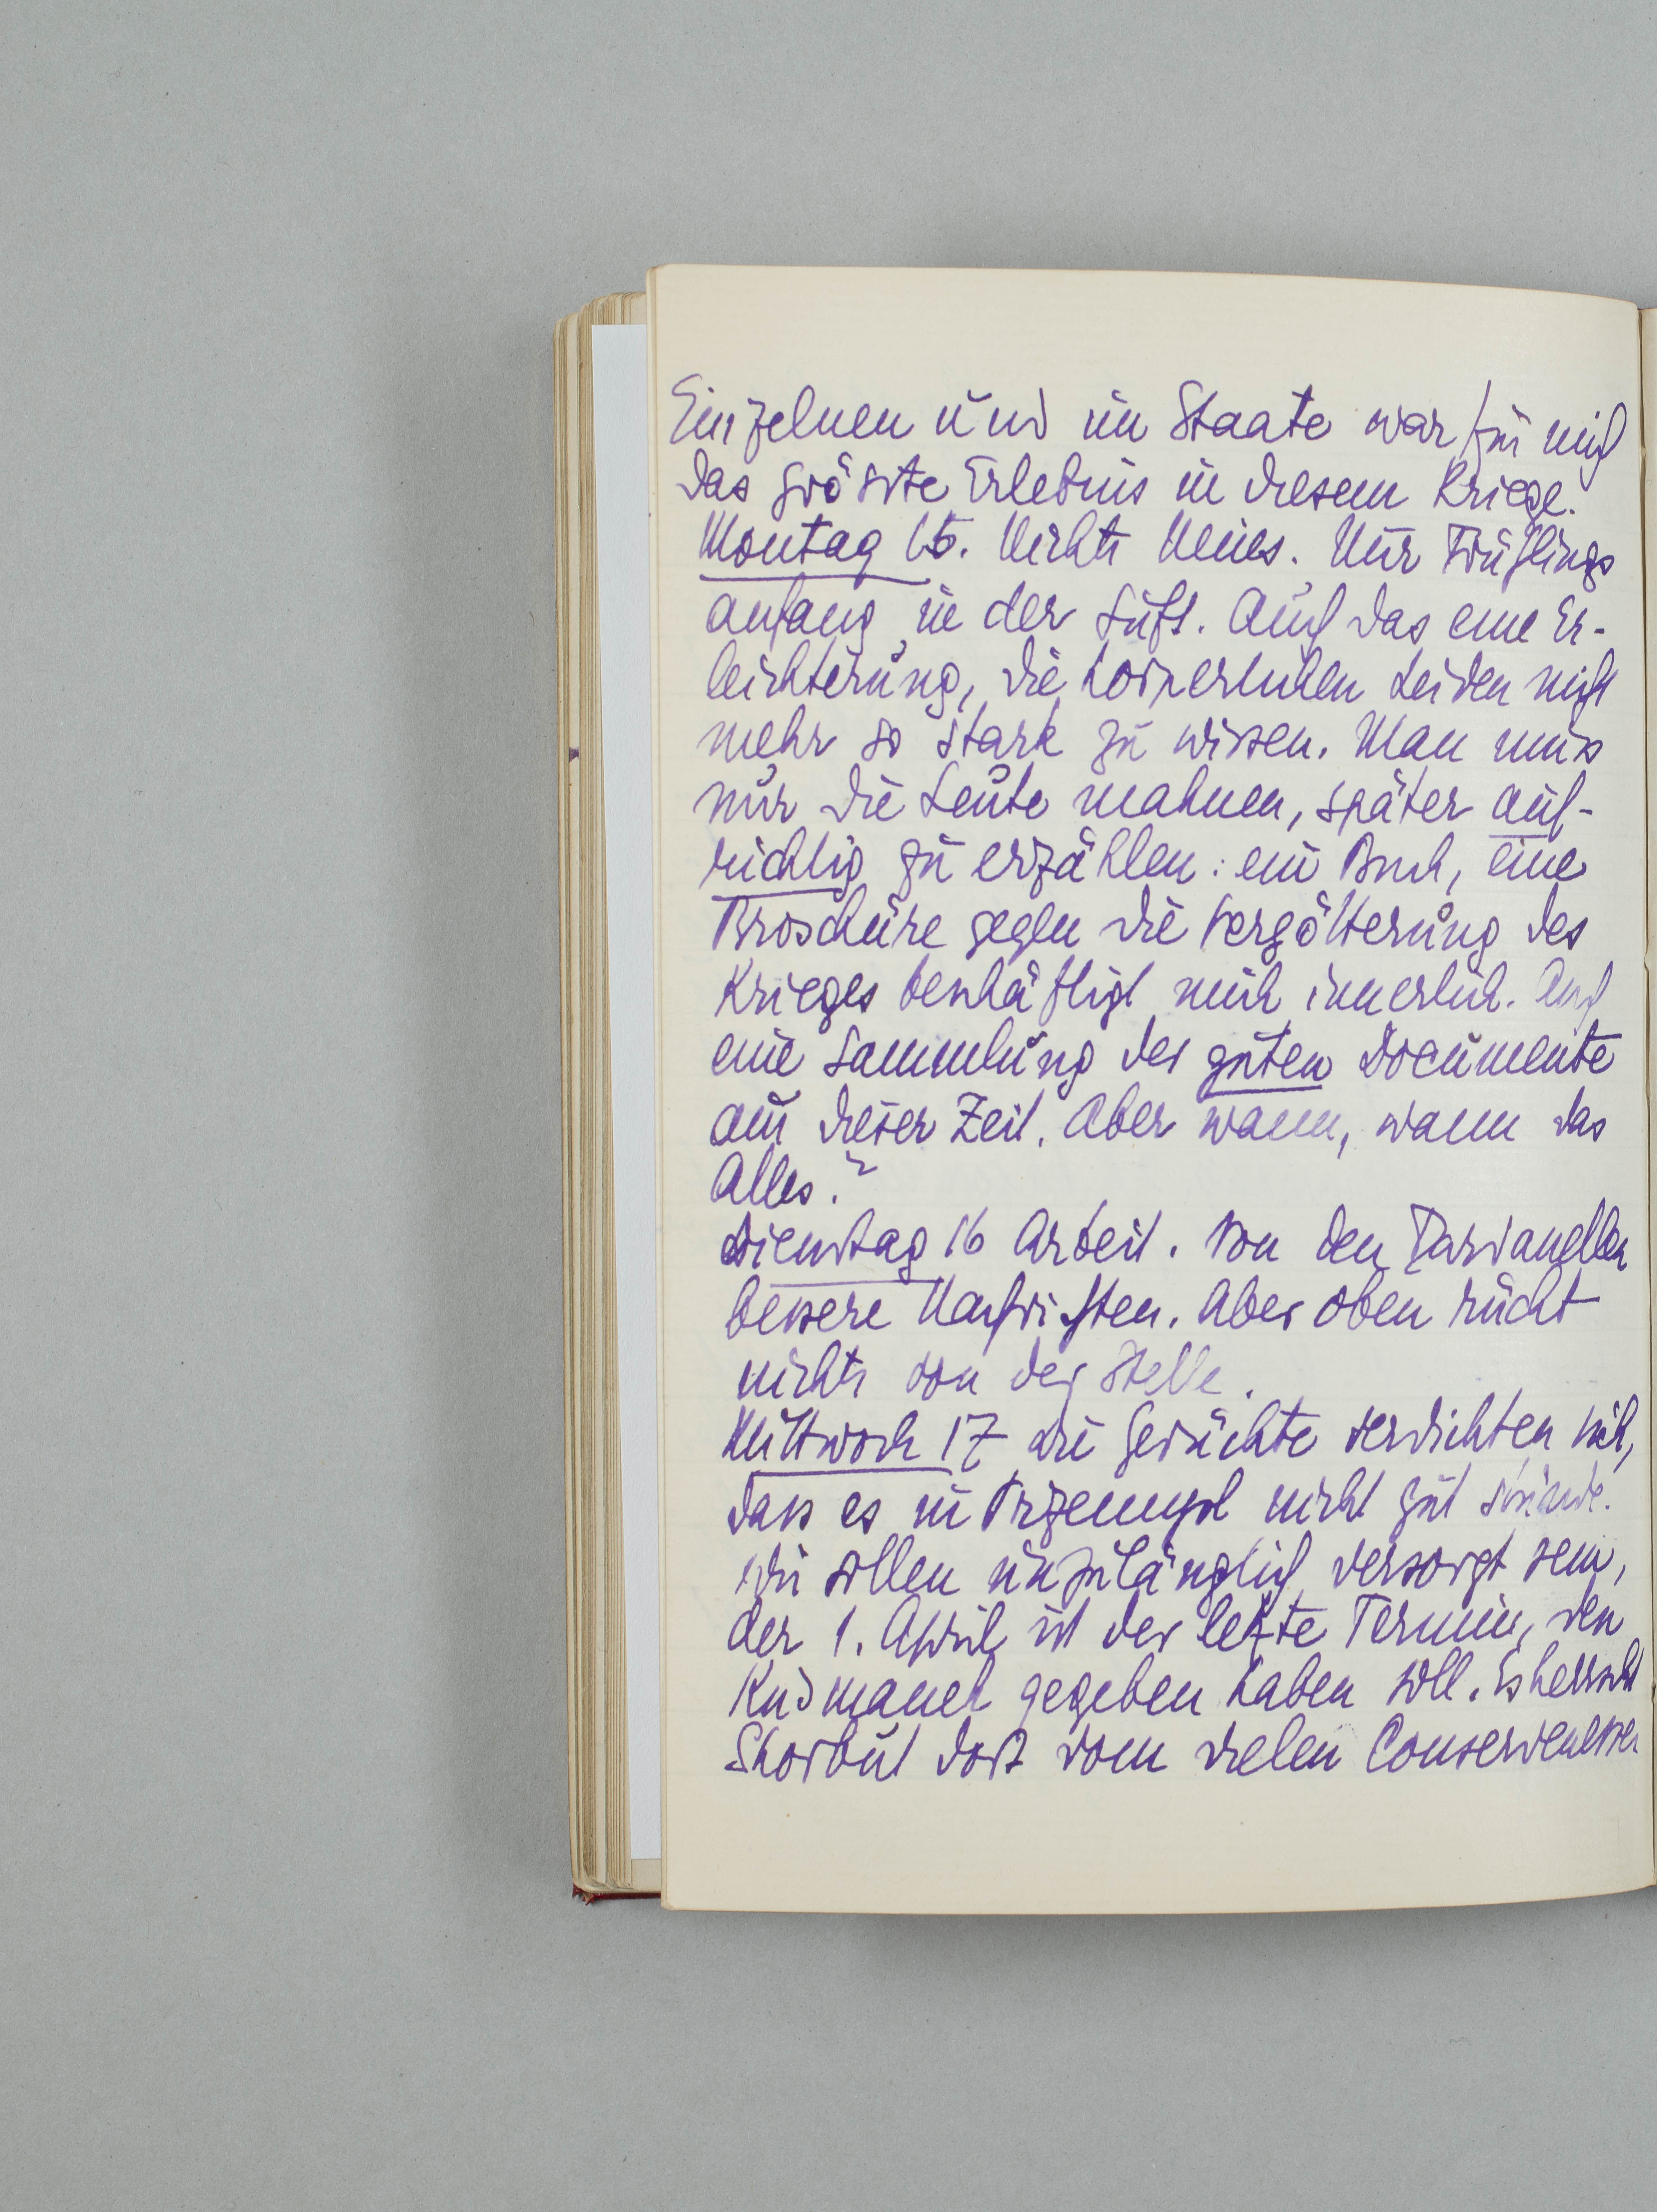 Einzelnen und im Staate war für mich
das grösste Erlebnis in diesem Kriege.
Montag 15. Nichts Neues. Nur Frühlings
anfang in der Luft. Auch das eine Er-
leichterung, die körperlichen Leiden nicht
mehr so stark zu wissen. Man muss
nur die Leute mahnen, später auf-
richtig zu erzählen: ein Buch, eine
Broschüre gegen die Vergötterung des
Krieges beschäftigt mich innerlich. Auch
eine Sammlung der guten Documente
aus dieser Zeit. Aber wann, wann das
Alles?
Dienstag 16 Arbeit. Von den Dardanellen
bessere Nachrichten. Aber oben rückt
nichts von der Stelle.
Mittwoch 17 Die Gerüchte verdichten sich,
dass es in Przemysl nicht gut stünde.
Sie sollen unzulänglich versorgt sein,
der 1. April ist der letzte Termin, den
Kusmanek gegeben haben soll. Es herrscht
Skorbut dort vom vielen Conservenessen